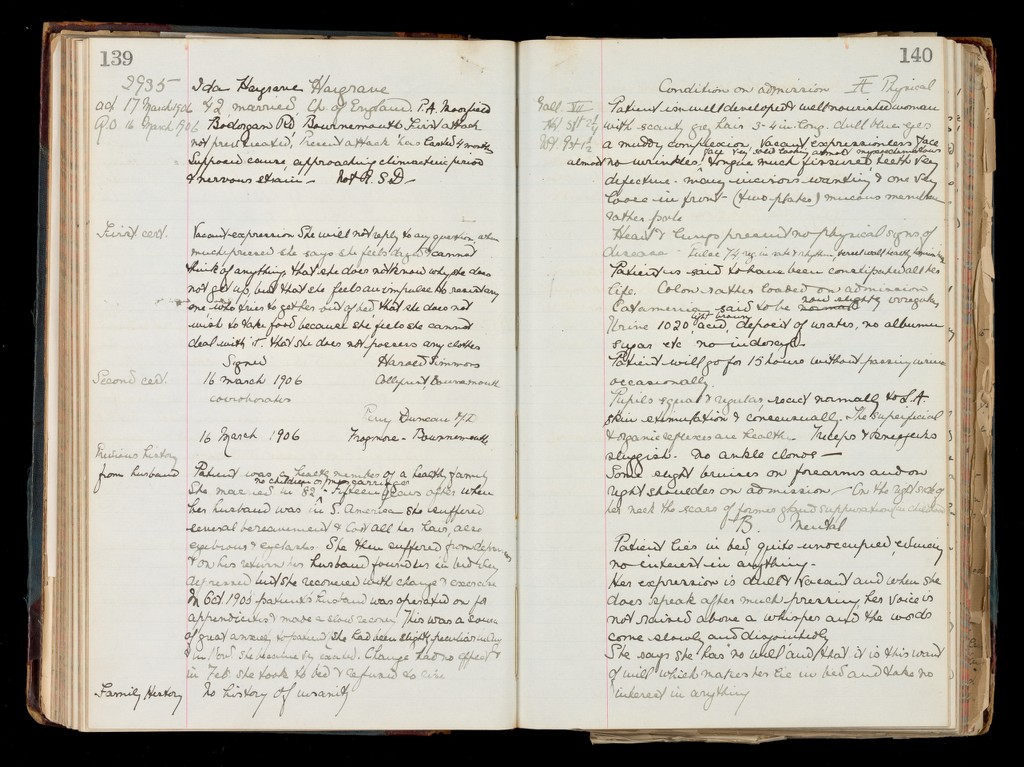 139
2935
Ida Hargrave Hargrave
ad 17 March 1906 42 married Ch of England P.A. Moorfield
R.O. 16 March 1906 Bodorgan Rd Bournemouth First attack
not prev treated, Present attack has lasted 4 months
Supposed cause, approaching climacteric period
& nervous strain - Not R. S. D -
First cert. Vacant expression She will not reply to any question, when
much pressed she says she feels & cannot
think of anything that she does not know why she does
not get up but that she feels an impulse to resist any
one who tries to get her out of bed that she does not
wish to take food because she feels she cannot
deal with it. that she does not possess any clothes
Signed Harold Simmons
Second cert. 16 March 1906 Bournemouth
corroborates
Percy Duncan MD
16 March 1906 Frogmore - Bournemouth
Previous history
from husband Patient was a healthy member of a healthy family
no children or miscarriages
She married in 82 - Fifteen years after when
her husband was in S. America she suffered
several bereavements & lost all her hair, also
eyebrows & eyelashes. She then suffered from
& on his return her husband found her in bed
depressed but she recovered with change & exercise
In Oct. 1905 patient's husband was operated on for
appendicitis & made a slow recovery This was a
of great anxiety to patient she had been slightly peculiar
& in Nov. she became Change had no effect &
in Feb she took to bed & refused to
Family History No history of insanity
140
Condition on admission A Physical
Patient is a well developed & well nourished woman
with scanty grey hair 3-4 in. long. dull blue eyes
a muddy complexion, Vacant expressionless face
face very myxoedematous
almost no wrinkles, tongue much fissured teeth very
defective - many incisors wanting & one very
loose in front - (two plates) mucous membrane
rather pale
Heart & Lungs present no physical signs of
disease Pulse 74 reg. in rate & rhythm,
Patient is said to have been constipated all her
life. Colon rather loaded on admission
Catamenia said to be now slightly irregular
light brown
Urine 1020 acid, deposit of urates, no albumen
sugar etc no indoxyl -
Patient will go for 15 hours without passing urine
occasionally.
Pupils equal & regular, react normally to L. A.
skin stimulation & consensually. The superficial
& organic reflexes are healthy - Triceps & knee jerks
sluggish. No ankle clonus -
Some slight bruises on forearms and on
right shoulder on admission - On the right side of
her neck the scars of former gland suppuration in childhood
B. Mental
Patient lies in bed quite unoccupied, evincing
no interest in anything -
Her expression is dull & vacant and when she
does speak after much pressing, her voice is
not raised above a whisper and the words
come slowly and disjointedly
She says she has no will and that it is this want
of will which makes her lie in bed and take no
interest in anything